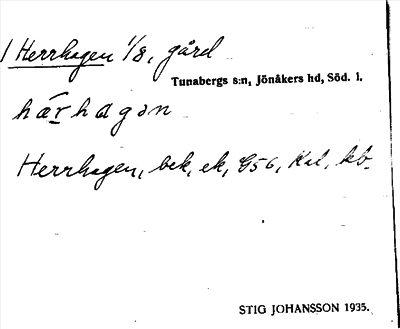 1 Herrhagen 1/8, gård
Tunabergs s:n, Jönåkers hd, Söd. l.
hærhagən
Herrhagen, bek, ek, G56, Kal, kb.
STIG JOHANSSON 1935.